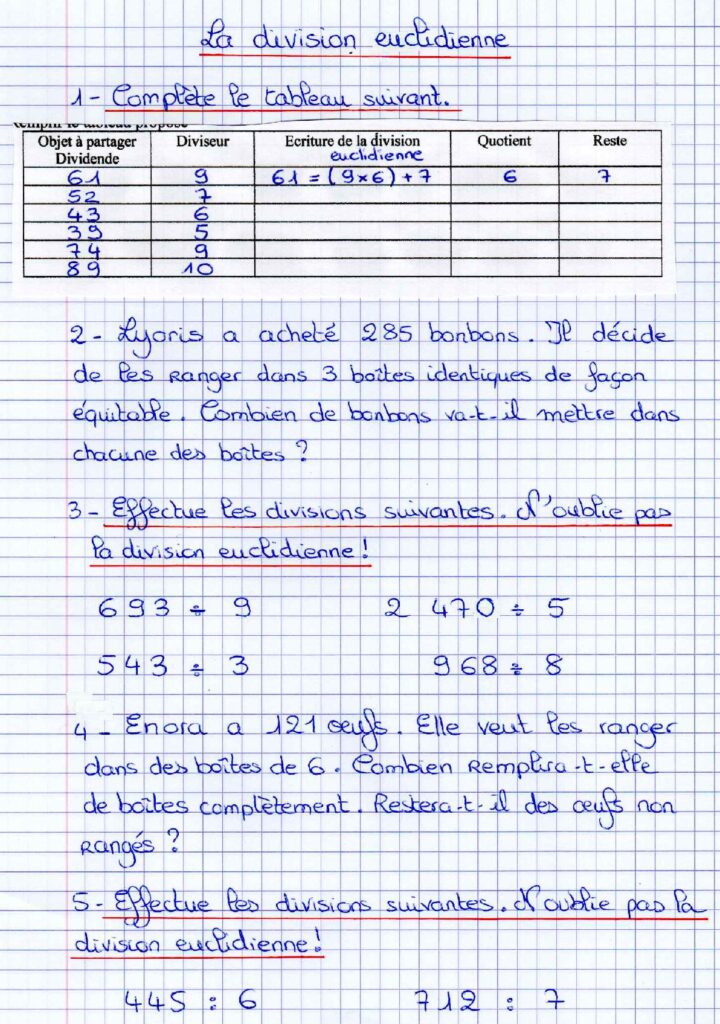 La division euclidienne
1 - Complète le tableau suivant.
Objet à partager Dividende | Diviseur | Ecriture de la division euclidienne | Quotient | Reste
61 | 9 | 61 = (9x6) + 7 | 6 | 7
52 | 7
43 | 6
39 | 5
74 | 9
89 | 10
2 - Lyoris a acheté 285 bonbons. Il décide
de les ranger dans 3 boîtes identiques de façon
équitable. Combien de bonbons va-t-il mettre dans
chacune des boîtes ?
3 - Effectue les divisions suivantes. N'oublie pas
la division euclidienne !
693 ÷ 9 2 470 ÷ 5
543 ÷ 3 968 ÷ 8
4 - Enora a 121 œufs. Elle veut les ranger
dans des boîtes de 6. Combien remplira-t-elle
de boîtes complètement. Restera-t-il des œufs non
rangés ?
5 - Effectue les divisions suivantes. N'oublie pas la
division euclidienne !
445 : 6 712 : 7